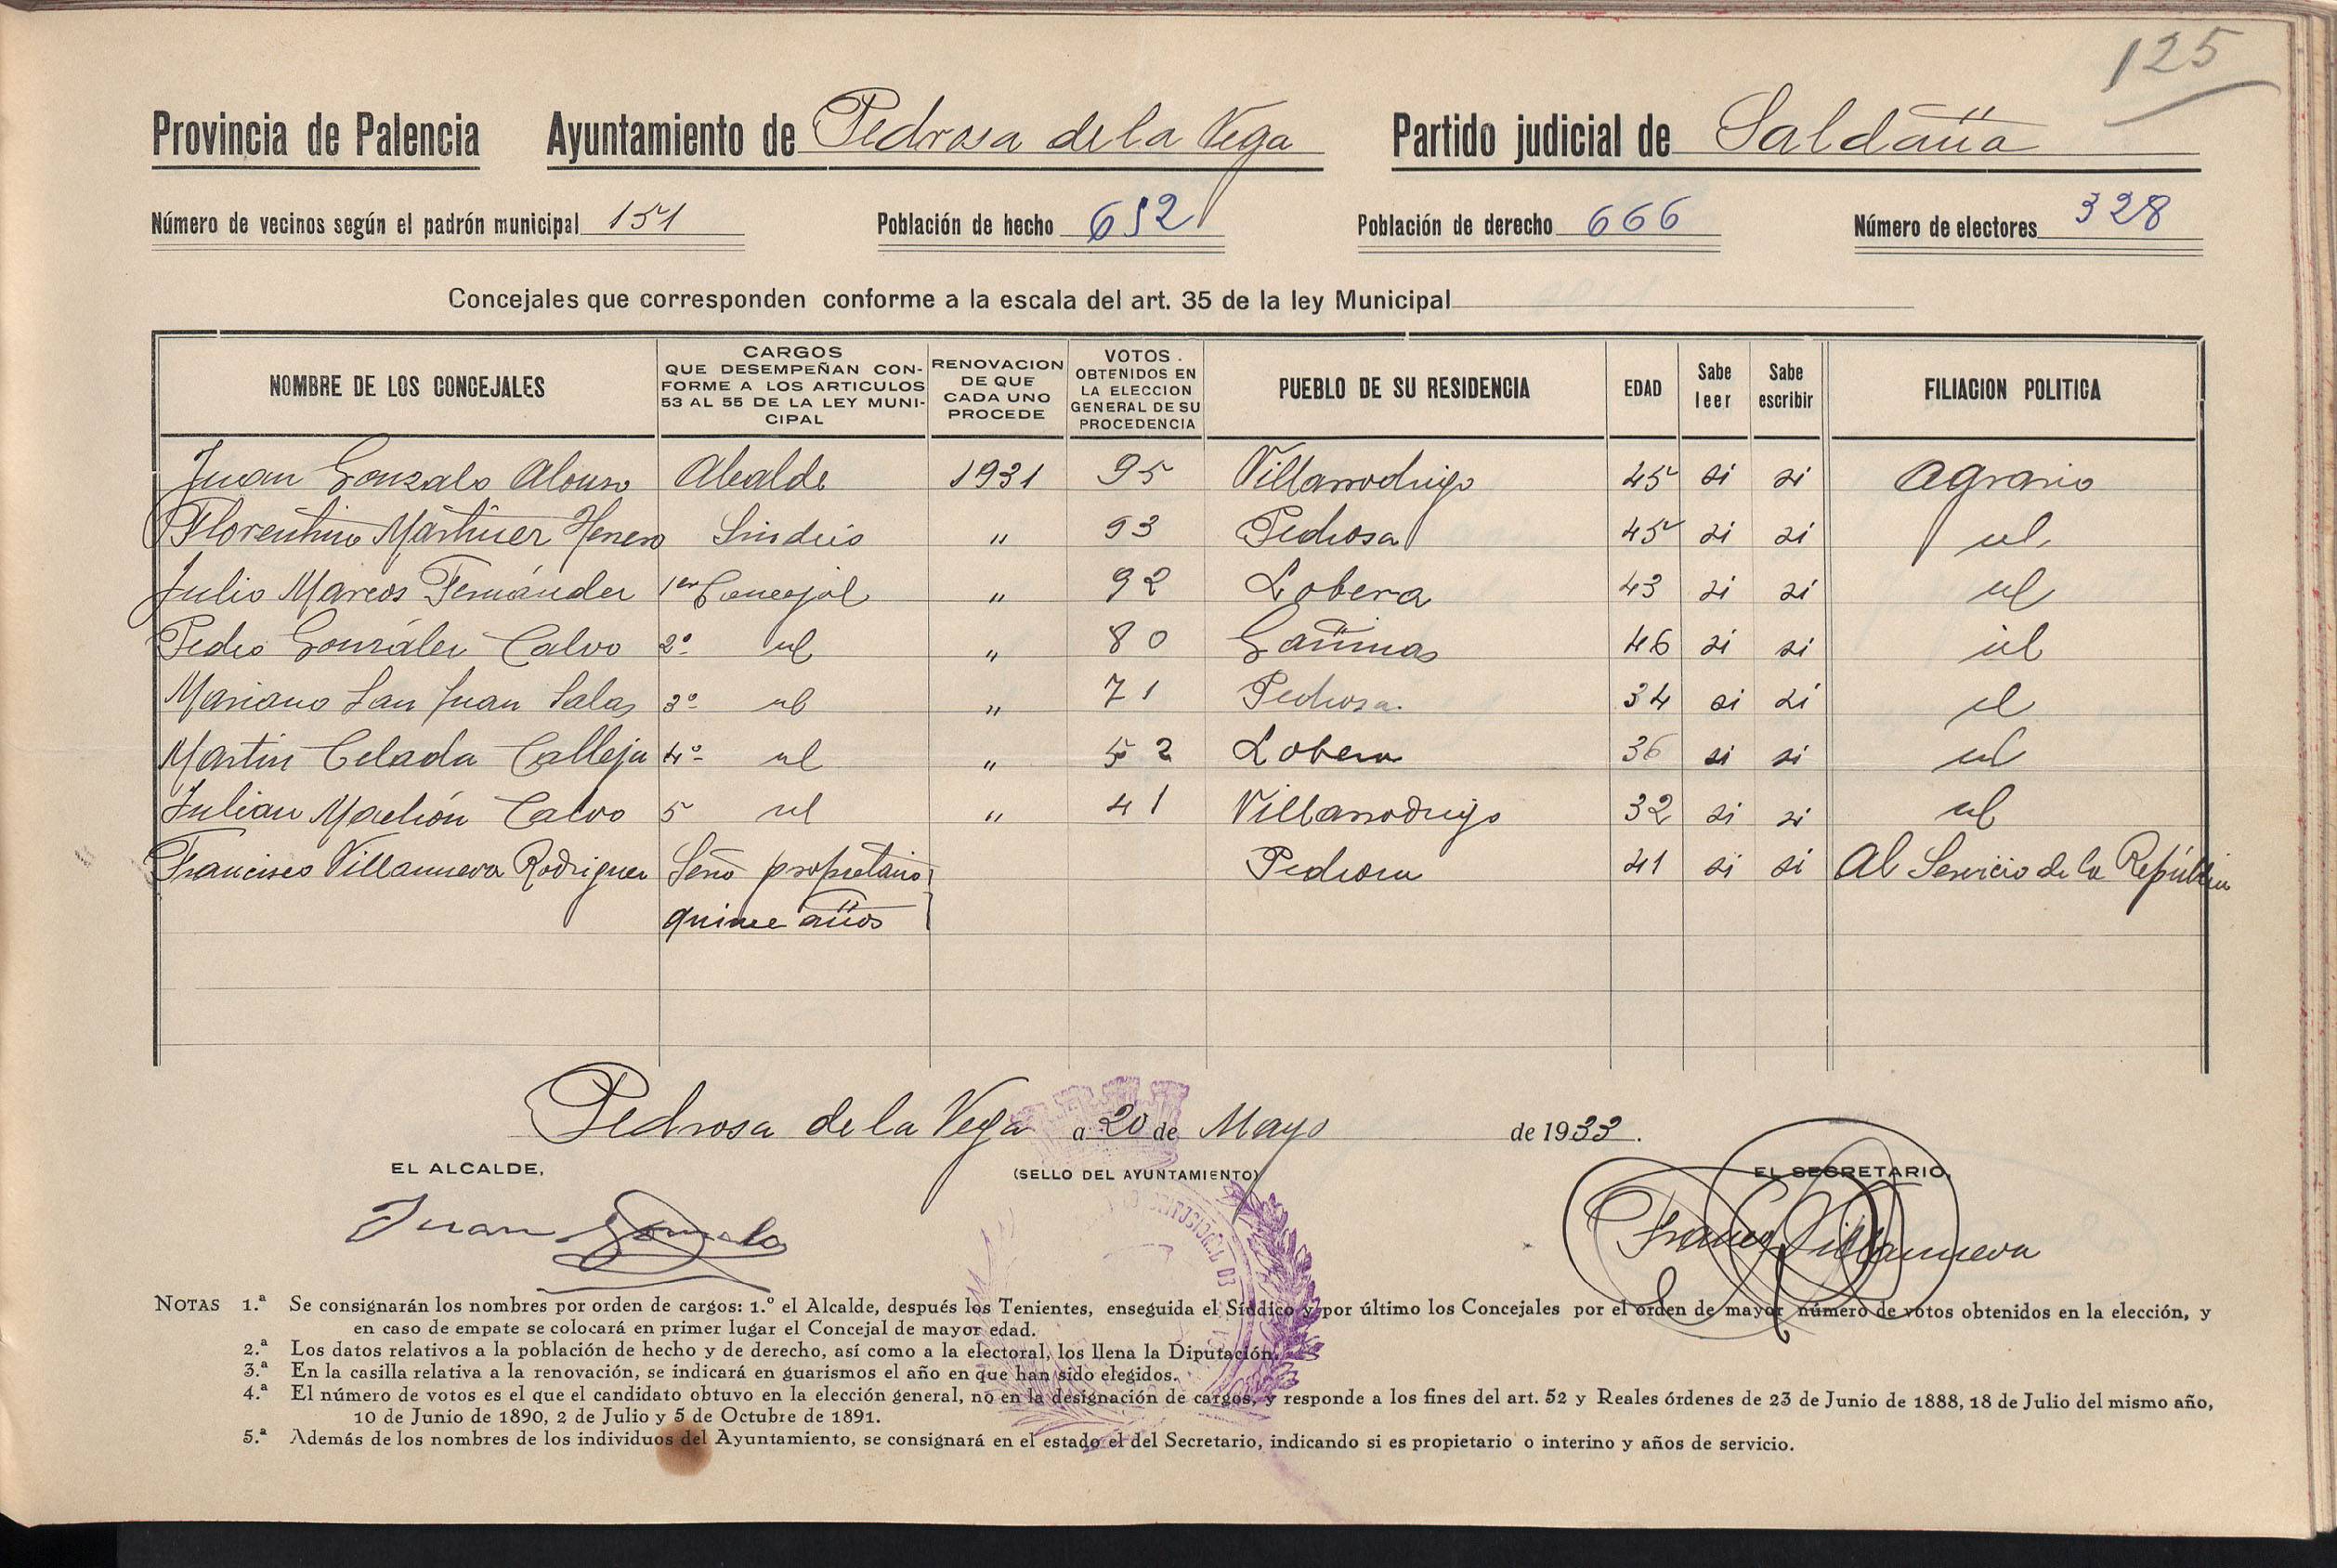 125
Provincia de Palencia Ayuntamiento de Pedrosa de la Vega Partido judicial de Saldaña
Número de vecinos según el padrón municipal 151 Población de hecho 652 Población de derecho 666 Número de electores 328
Concejales que corresponden conforme a la escala del art. 35 de la ley Municipal
NOMBRE DE LOS CONCEJALES CARGOS QUE DESEMPEÑAN CONFORME A LOS ARTICULOS 53 AL 55 DE LA LEY MUNICIPAL RENOVACION DE QUE CADA UNO PROCEDE VOTOS OBTENIDOS EN LA ELECCION GENERAL DE SU PROCEDENCIA PUEBLO DE SU RESIDENCIA EDAD Sabe leer Sabe escribir FILIACION POLITICA
Juan Gonzalo Alonso Alcalde 1931 95 Villarrodrigo 45 si si agrario
Florentino Martinez Herrero Sindico " 93 Pedrosa 45 si si id.
Julio Marcos Fernández 1er Concejal " 92 Lobera 43 si si id
Pedro González Calvo 2º id " 80 Gañinas 46 si si id
Mariano San Juan Salas 3º id " 71 Pedrosa. 34 si si id
Martin Celada Calleja 4º id " 52 Lobera 36 si si id
Julian Machón Calvo 5 id " 41 Villarrodrigo 32 si si id
Francisco Villanueva Rodriguez Seño propietario Pedrosa 41 si si Al Servicio de la República
quince años
Pedrosa de la Vega a 20 de Mayo de 1933.
EL ALCALDE, (SELLO DEL AYUNTAMIENTO) EL SECRETARIO,
Juan Gonzalo Franco Villanueva
NOTAS 1.ª Se consignarán los nombres por orden de cargos: 1.º el Alcalde, después los Tenientes, enseguida el Síndico y por último los Concejales por el orden de mayor número de votos obtenidos en la elección, y
en caso de empate se colocará en primer lugar el Concejal de mayor edad.
2.ª Los datos relativos a la población de hecho y de derecho, así como a la electoral, los llena la Diputación.
3.ª En la casilla relativa a la renovación, se indicará en guarismos el año en que han sido elegidos.
4.ª El número de votos es el que el candidato obtuvo en la elección general, no en la designación de cargos, y responde a los fines del art. 52 y Reales órdenes de 23 de Junio de 1888, 18 de Julio del mismo año,
10 de Junio de 1890, 2 de Julio y 5 de Octubre de 1891.
5.ª Además de los nombres de los individuos del Ayuntamiento, se consignará en el estado el del Secretario, indicando si es propietario o interino y años de servicio.